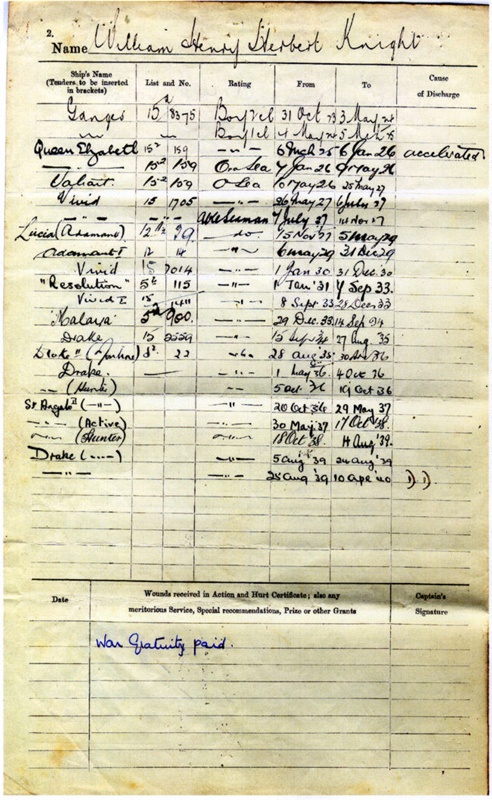 2.
Name William Henry Herbert Knight
Ship's Name (Tenders to be inserted in brackets) List and No. Rating From To Cause of Discharge
Ganges 15 8375 Boy 31 Oct 23 3 May 24
Boy 4 May 24 5 Mch 25
Queen Elizabeth 15² 159 " 6 Mch 25 6 Jan 26 accelerated
15² 159 Ord Sea 7 Jan 26 May 26
Valiant 15² 109 O Sea 10 May 26 25 May 27
Vivid 15 1705 " 26 May 27 6 July 27
Able Seaman 7 July 27 14 Nov 27
Lucia (Adamant) 12 do. 15 Nov 27 5 May 29
Adamant 12 14 " 6 May 29 31 Dec 29
Vivid 15 7014 " 1 Jan 30 31 Dec 30
"Resolution" 5 115 " 1 Jan '31 7 Sep 33.
Vivid I 15 " 8 Sept 33 28 Dec 33
Malaya 5 900. " 29 Dec. 33 14 Sep 34
Drake 15 2559 " 15 Sep 34 27 Aug 35
Drake 22 28 Aug 35 30 Apr 36
Drake. " 1 May 36 4 Oct 36
" (Hunter) 5 Oct '36 19 Oct 36
St Angelo II (—"—) " 20 Oct '36 29 May 37
—"— (Active) " 30 May '37 17 Oct '38
(Hunter) 18 Oct '38 4 Aug '39.
Drake (----) —"— 5 Aug '39 24 Aug '39
—"— 25 Aug '39 10 Apr '40
Date Wounds received in Action and Hurt Certificate; also any meritorious Service, Special recommendations, Prize or other Grants Captain's Signature
War Gratuity paid.